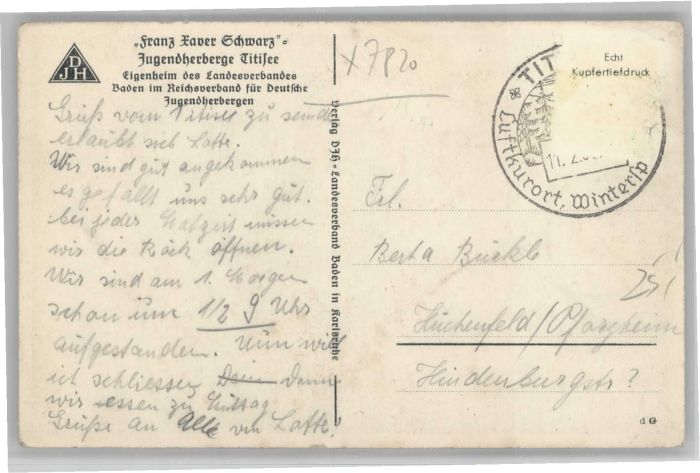 DJH
„Franz Xaver Schwarz"=
Jugendherberge Titisee
Eigenheim des Landesverbandes
Baden im Reichsverband für Deutsche
Jugendherbergen
Gruß vom Titisee zu senden
erlaubt sich Lotte.
Wir sind gut angekommen
es gefällt uns sehr gut.
bei jeder müssen
wir die Röck öffnen.
Wir sind am 1. Morgen
schon um 1/2 9 Uhr
aufgestanden. Nun will
ich schliessen Denn
wir essen zu Mittag
Grüße an Alle von Lotte.
Verlag DJH=Landesverband Baden in Karlsruhe
x7820
Echt
Kupfertiefdruck
TIT
11.2.
Luftkurort, Wintersp
Frl.
Berta Bürkle
Huchenfeld/Pforzheim
Hindenburgstr?
25!
d G